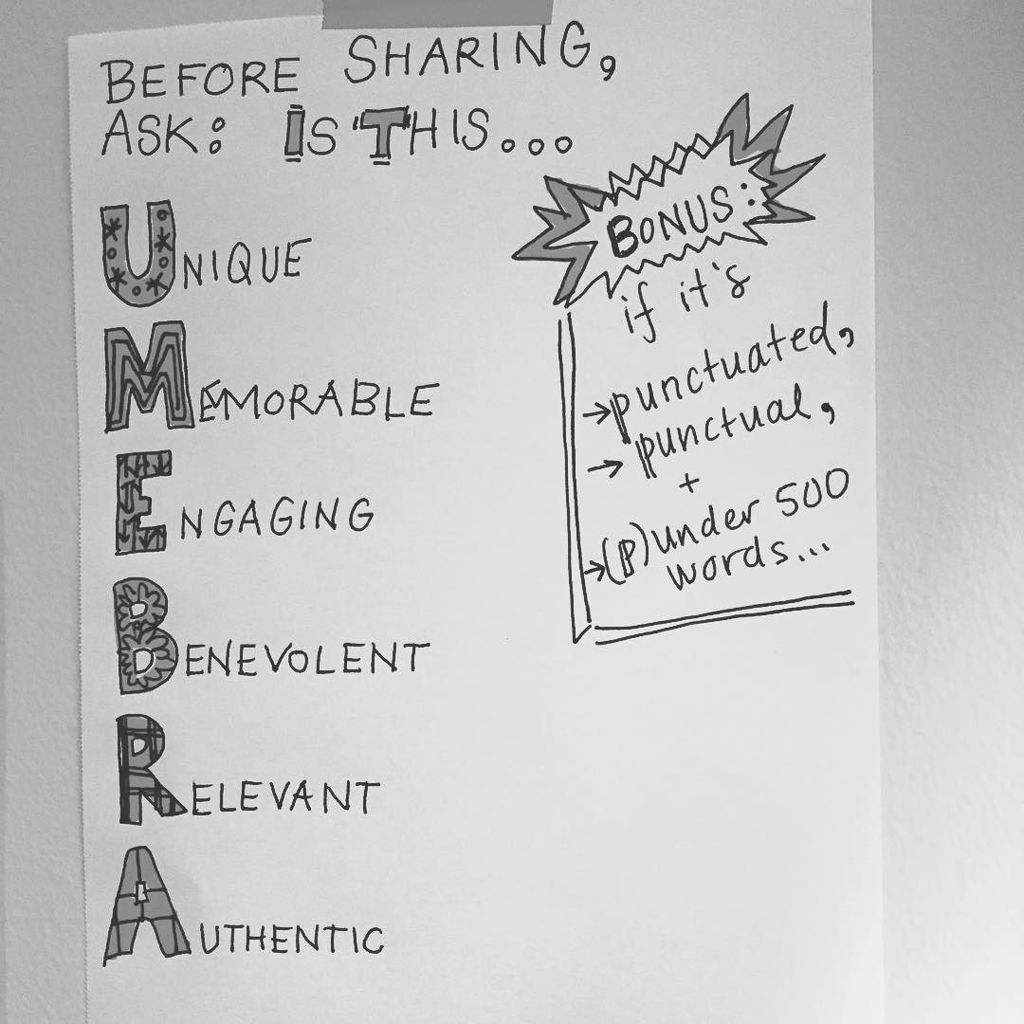 BEFORE SHARING,
ASK: IS THIS...
UNIQUE
MEMORABLE
ENGAGING
BENEVOLENT
RELEVANT
AUTHENTIC
BONUS:
if it's
→punctuated,
→ punctual,
+
→(P)under 500
words...